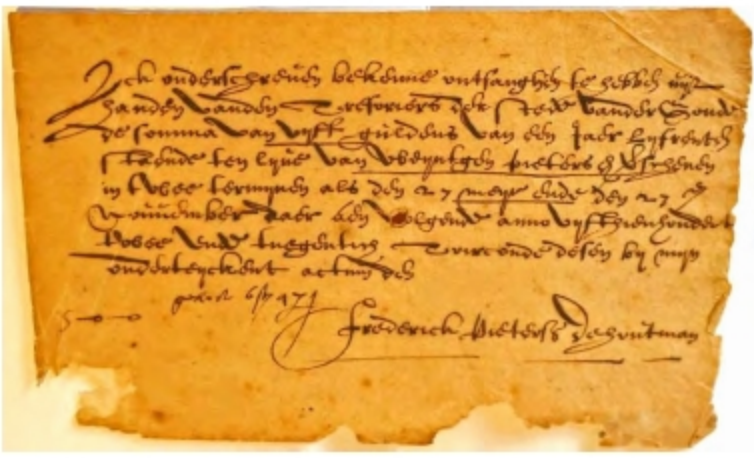 Ick onderschreven bekenne ontfanghen te hebben uijt
handen vanden Tresoriers der Stede vander Goude
de somma van vyff guldens van een Jaer Lyfrenten
staende ten lyve van pieters verschenen
in twee termynen als den 27 meye ende den 27
Novvember daer aen volgende anno vyfthienhondert
twee ende tnegentich Toirconde desen by myn
onderteyckent actum den
Frederick Pieterss de houtman